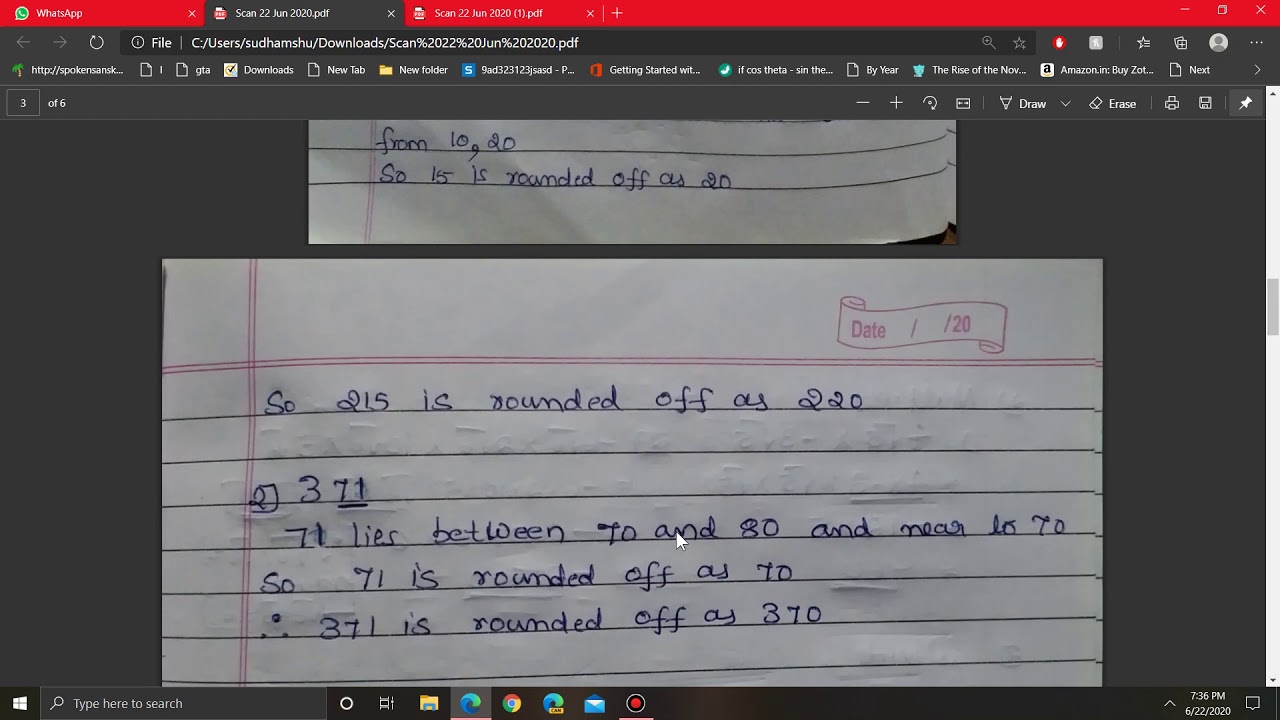 WhatsApp
Scan 22 Jun 2020.pdf
Scan 22 Jun 2020 (1).pdf
File
C:/Users/sudhamshu/Downloads/Scan%2022%20Jun%202020.pdf
http://spokensansk...
l
gta
Downloads
New Tab
New folder
9ad323123jsasd - P...
Getting Started wit...
if cos theta - sin the...
By Year
The Rise of the Nov...
Amazon.in: Buy Zot...
Next
3 of 6
Draw
Erase
from 10, 20
So 15 is rounded off as 20
Date / /20
So 215 is rounded off as 220
2] 371
71 lies between 70 and 80 and near to 70
So 71 is rounded off as 70
∴ 371 is rounded off as 370
Type here to search
CAN
7:36 PM
6/22/2020